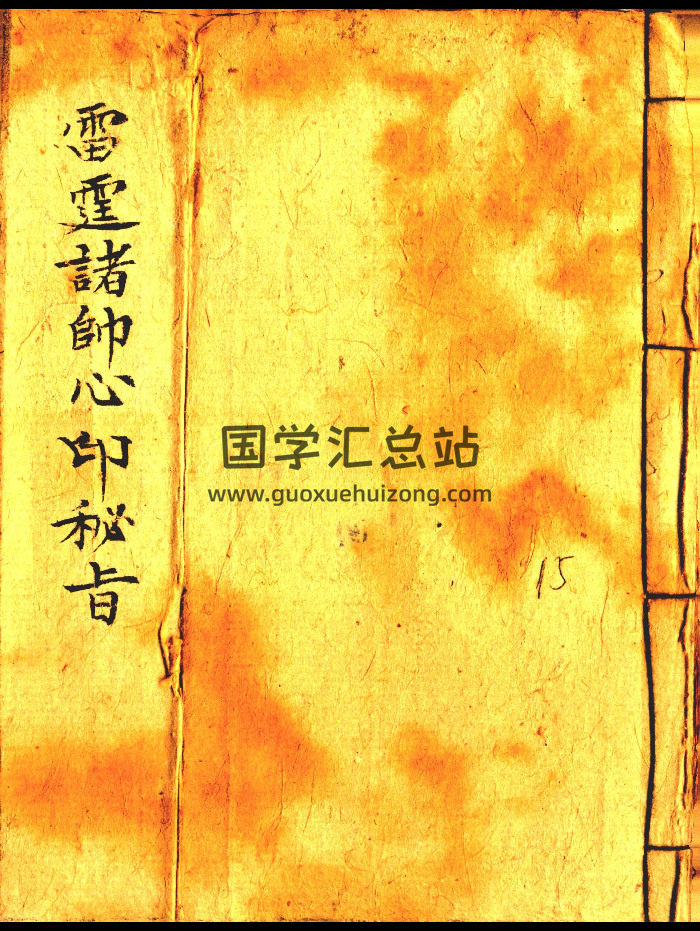 雷霆諸帥心印秘旨
国学汇总站
www.guoxuehuizong.com
15